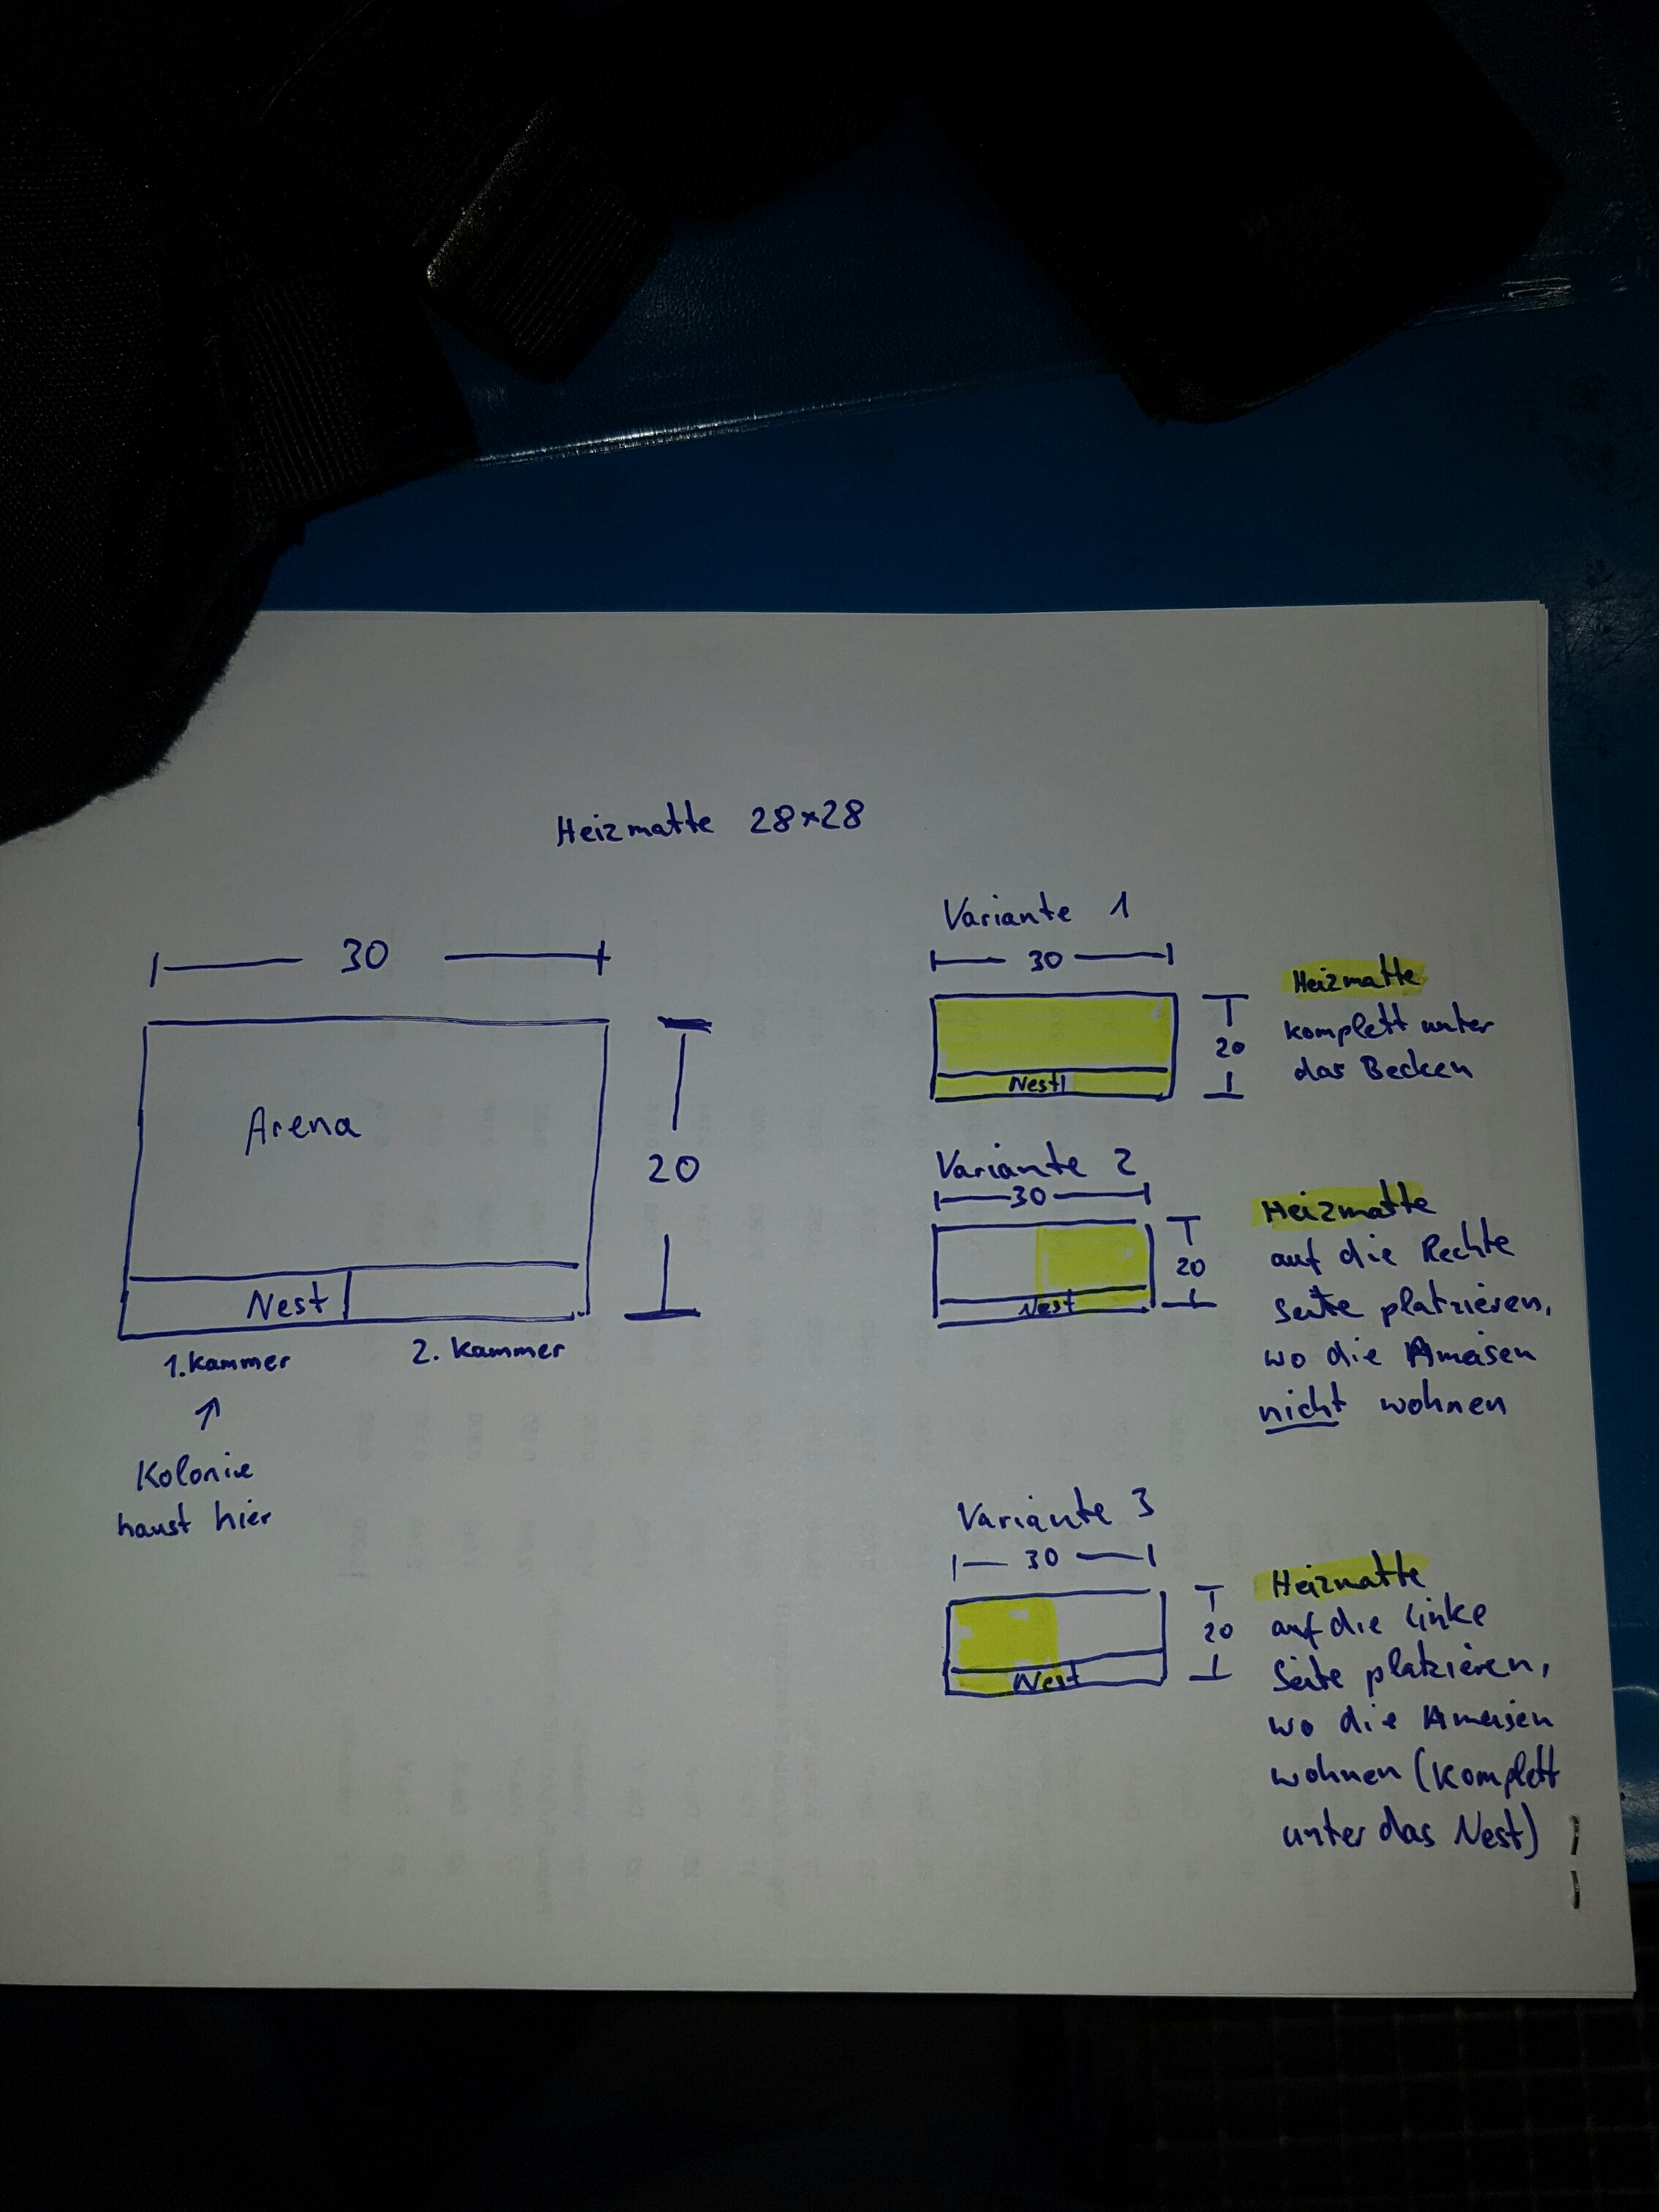 Heizmatte 28x28
30
Arena
20
Nest
1. Kammer
2. Kammer
Kolonie
haust hier
Variante 1
30
Nest
20
Heizmatte
komplett unter
das Becken
Variante 2
30
Nest
20
Heizmatte
auf die Rechte
Seite platzieren,
wo die Ameisen
nicht wohnen
Variante 3
30
Nest
20
Heizmatte
auf die Linke
Seite platzieren,
wo die Ameisen
wohnen (komplett
unter das Nest)